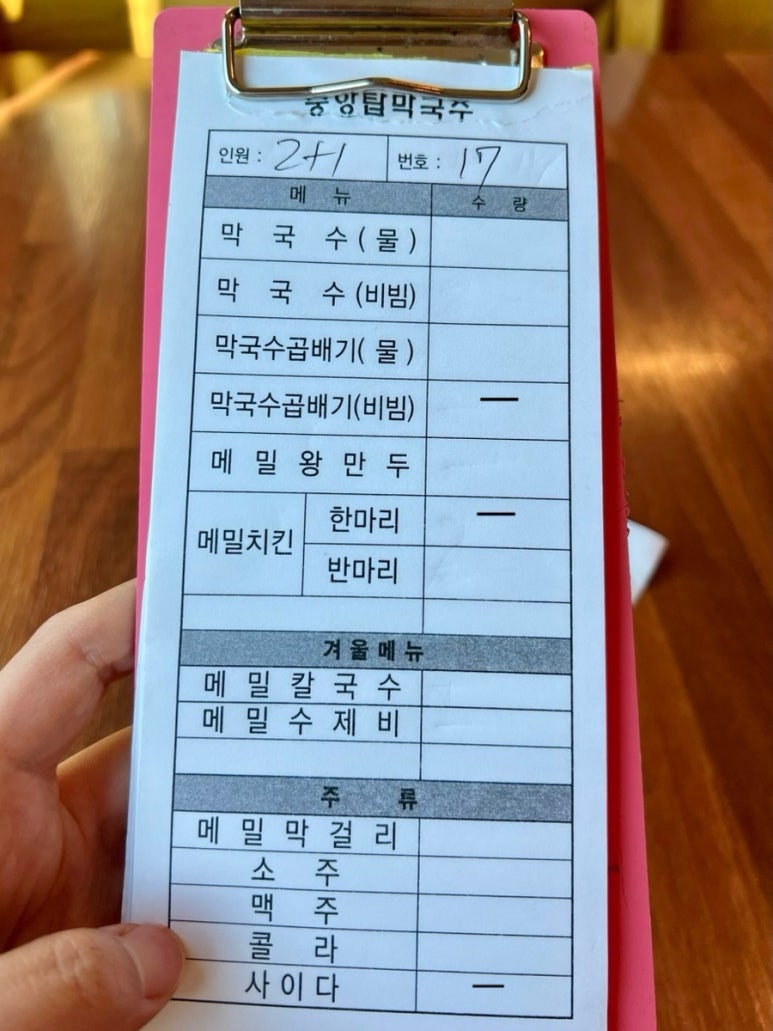 중앙탑막국수
인원 : 2+1 번호 : 17
메 뉴 수 량
막 국 수 ( 물 )
막 국 수 (비빔)
막국수곱배기( 물 )
막국수곱배기(비빔) —
메 밀 왕 만 두
메밀치킨 한마리 —
반마리
겨울메뉴
메 밀 칼 국 수
메 밀 수 제 비
주 류
메 밀 막 걸 리
소 주
맥 주
콜 라
사 이 다 —